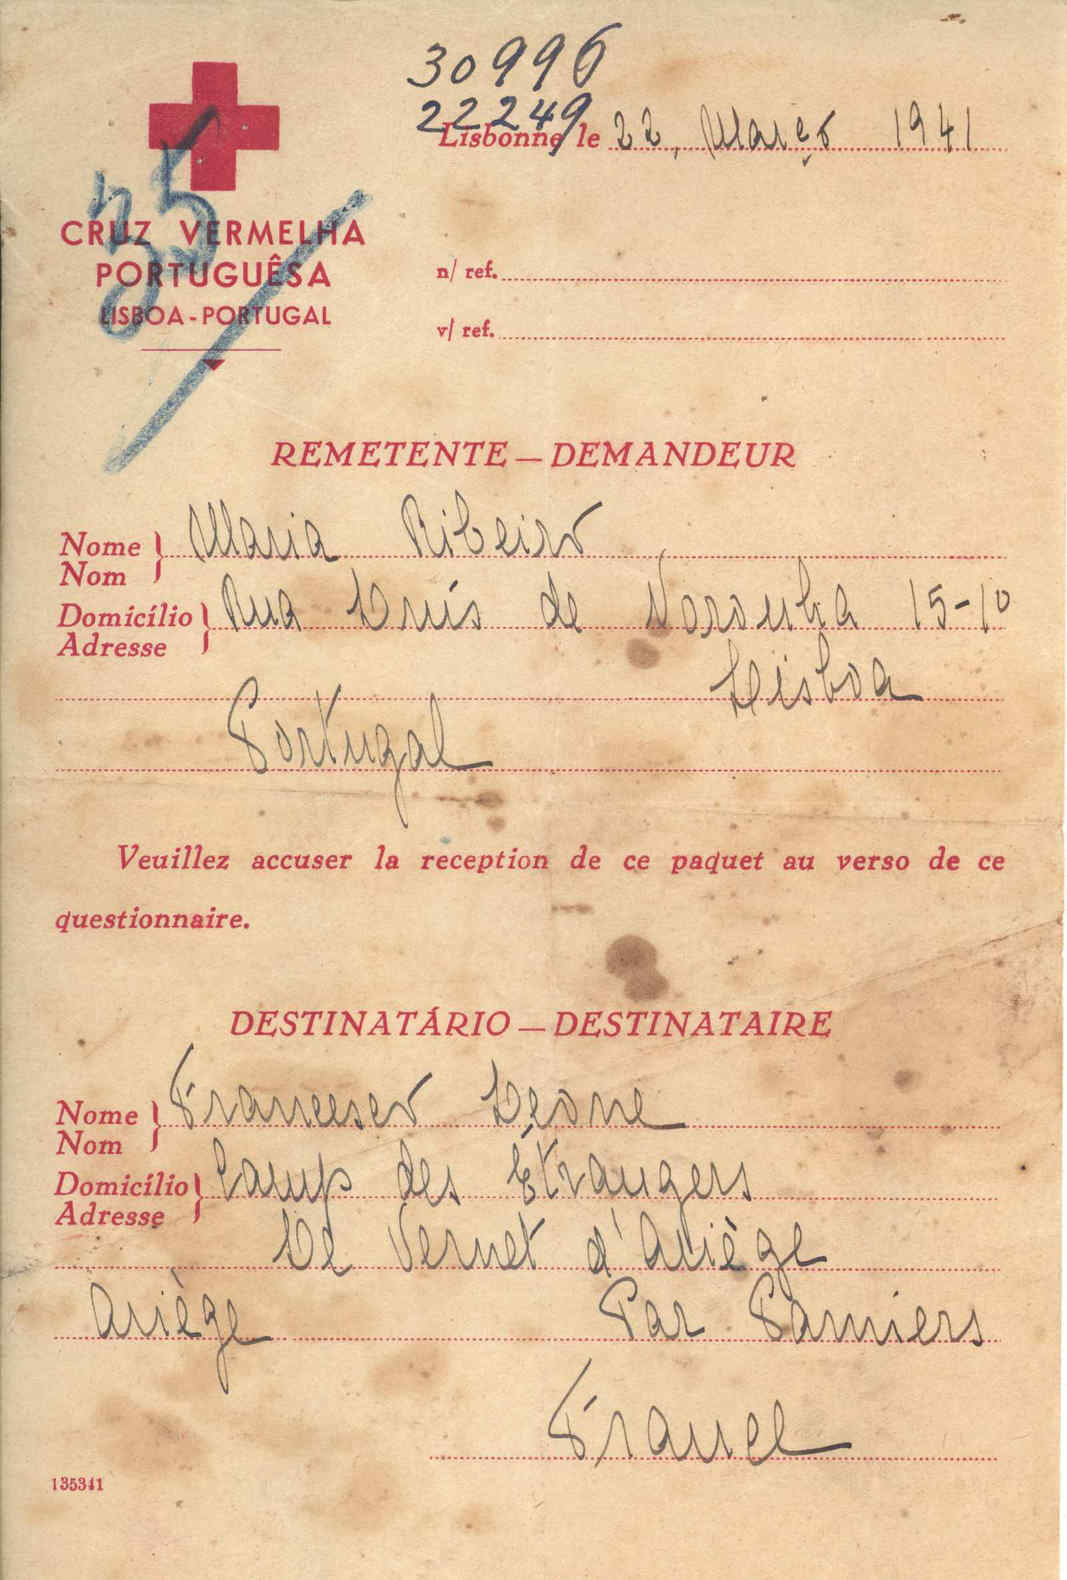 30996
22249
Lisbonne, le 22, Março 1941
35
CRUZ VERMELHA
PORTUGUÊSA
LISBOA - PORTUGAL
n/ ref.
v/ ref.
REMETENTE — DEMANDEUR
Nome
Nom
Maria Ribeiro
Domicílio
Adresse
Rua Luís de Noronha 15-1º
Lisboa
Portugal
Veuillez accuser la reception de ce paquet au verso de ce
questionnaire.
DESTINATÁRIO — DESTINATAIRE
Nome
Nom
Francesco Leone
Domicílio
Adresse
Camp des Étrangers
Le Vernet d'Ariège
Ariège Par Pamiers
France
135341